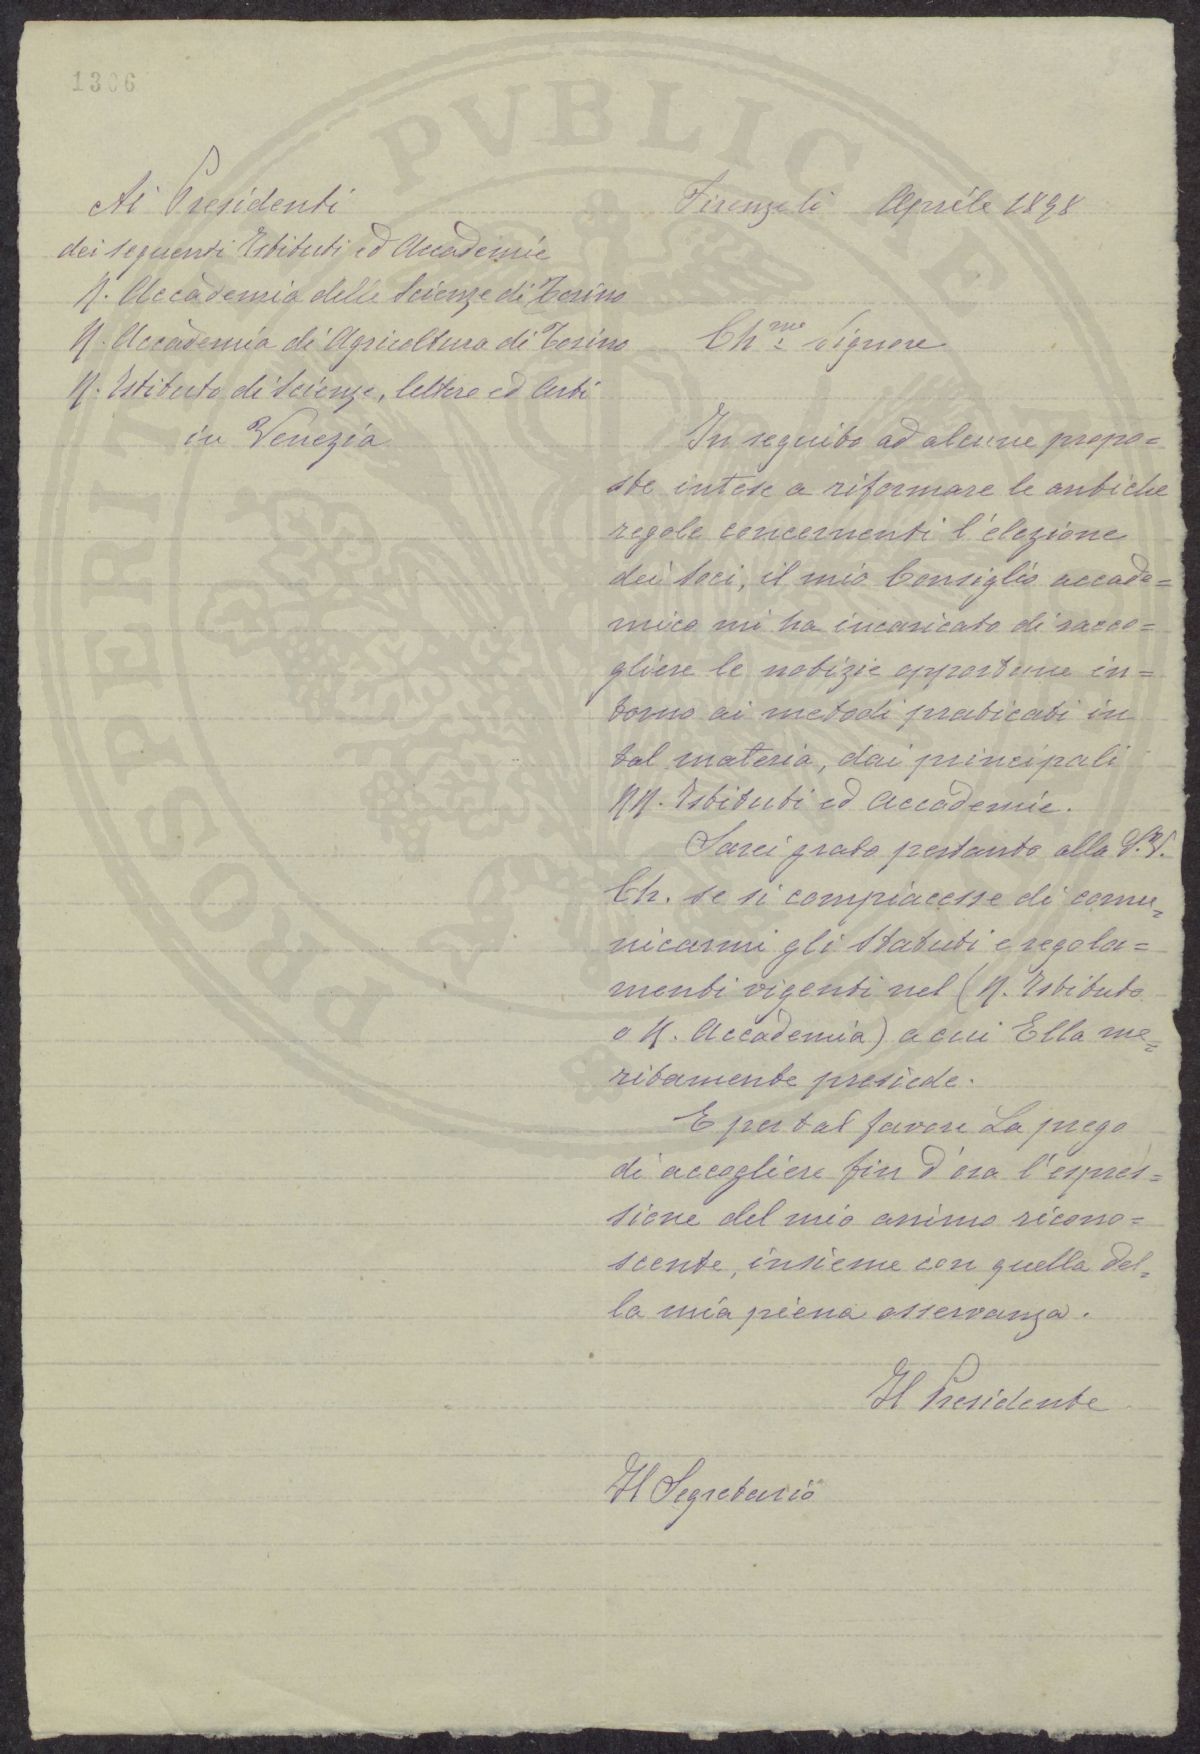 1306
Ai Presidenti
dei seguenti Istituti ed Accademie
R. Accademia delle Scienze di Torino
R. Accademia di Agricoltura di Torino
R. Istituto di Scienze, lettere ed Arti
in Venezia
Firenze li Aprile 1898
Ch.me Signore
In seguito ad alcune propo=
ste intese a riformare le antiche
regole concernenti l'elezione
dei soci, il mio Consiglio accade=
mico mi ha incaricato di racco=
gliere le notizie opportune in=
torno ai metodi praticati in
tal materia, dai principali
RR. Istituti ed Accademie.
Sarei grato pertanto alla S.V.
Ch. se si compiacesse di comu=
nicarmi gli Statuti e regola=
menti vigenti nel (R. Istituto
o R. Accademia) a cui Ella me=
ritamente presiede.
E per tal favore La prego
di accogliere fin d'ora l'espres=
sione del mio animo ricono=
scente, insieme con quella del=
la mia piena osservanza.
Il Presidente
Il Segretario
PROSPERITATI PUBLICAE